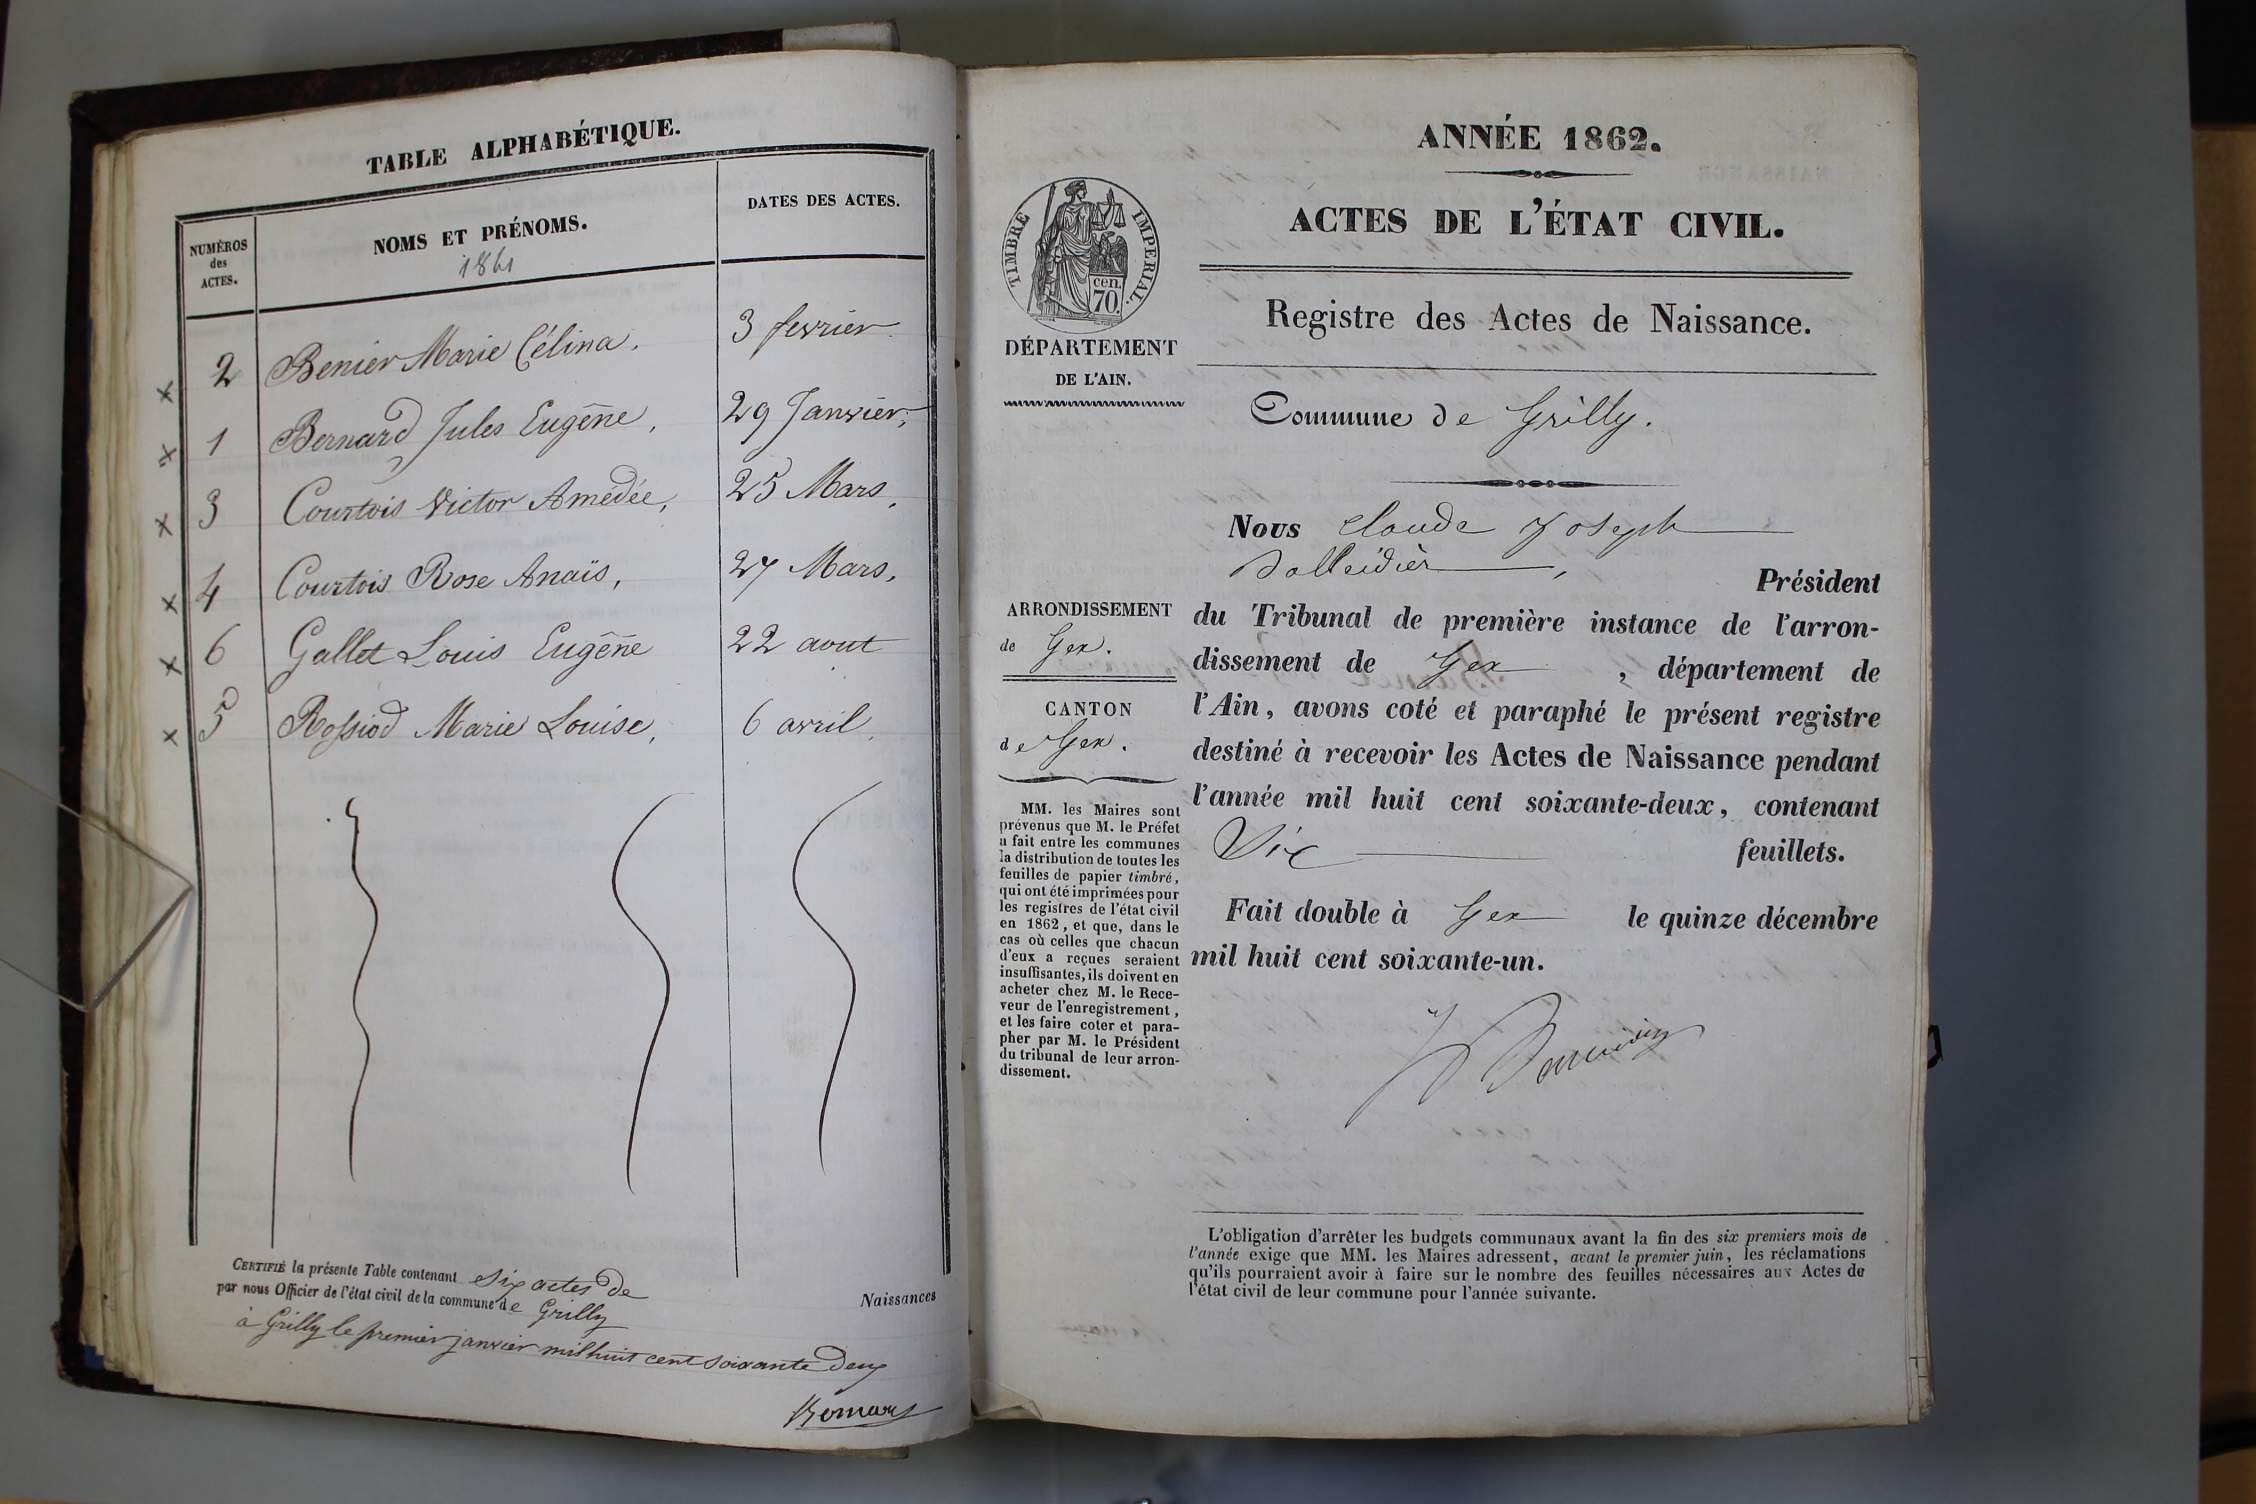 TABLE ALPHABÉTIQUE.
NUMÉROS
des
ACTES.
NOMS ET PRÉNOMS.
1861
DATES DES ACTES.
x 2 Benier Marie Célina. 3 fevrier
x 1 Bernard Jules Eugêne, 29 Janvier,
x 3 Courtois Victor Amédée, 25 Mars,
x 4 Courtois Rose Anaïs, 27 Mars,
x 6 Gallet Louis Eugêne 22 aout
x 5 Rossiod Marie Louise, 6 avril.
CERTIFIÉ la présente Table contenant six actes de
Naissances
par nous Officier de l'état civil de la commune de Grilly
à Grilly le premier janvier mil huit cent soixante deux
ANNÉE 1862.
ACTES DE L'ÉTAT CIVIL.
TIMBRE IMPERIAL.
cen.
70.
DÉPARTEMENT
DE L'AIN.
Registre des Actes de Naissance.
Commune de Grilly.
ARRONDISSEMENT
de Gex.
CANTON
de Gex.
MM. les Maires sont
prévenus que M. le Préfet
a fait entre les communes
la distribution de toutes les
feuilles de papier timbré,
qui ont été imprimées pour
les registres de l'état civil
en 1862, et que, dans le
cas où celles que chacun
d'eux a reçues seraient
insuffisantes, ils doivent en
acheter chez M. le Rece-
veur de l'enregistrement,
et les faire coter et para-
pher par M. le Président
du tribunal de leur arron-
dissement.
Nous Claude Joseph
Président
du Tribunal de première instance de l'arron-
dissement de Gex, département de
l'Ain, avons coté et paraphé le présent registre
destiné à recevoir les Actes de Naissance pendant
l'année mil huit cent soixante-deux, contenant
Six feuillets.
Fait double à Gex le quinze décembre
mil huit cent soixante-un.
L'obligation d'arrêter les budgets communaux avant la fin des six premiers mois de
l'année exige que MM. les Maires adressent, avant le premier juin, les réclamations
qu'ils pourraient avoir à faire sur le nombre des feuilles nécessaires aux Actes de
l'état civil de leur commune pour l'année suivante.